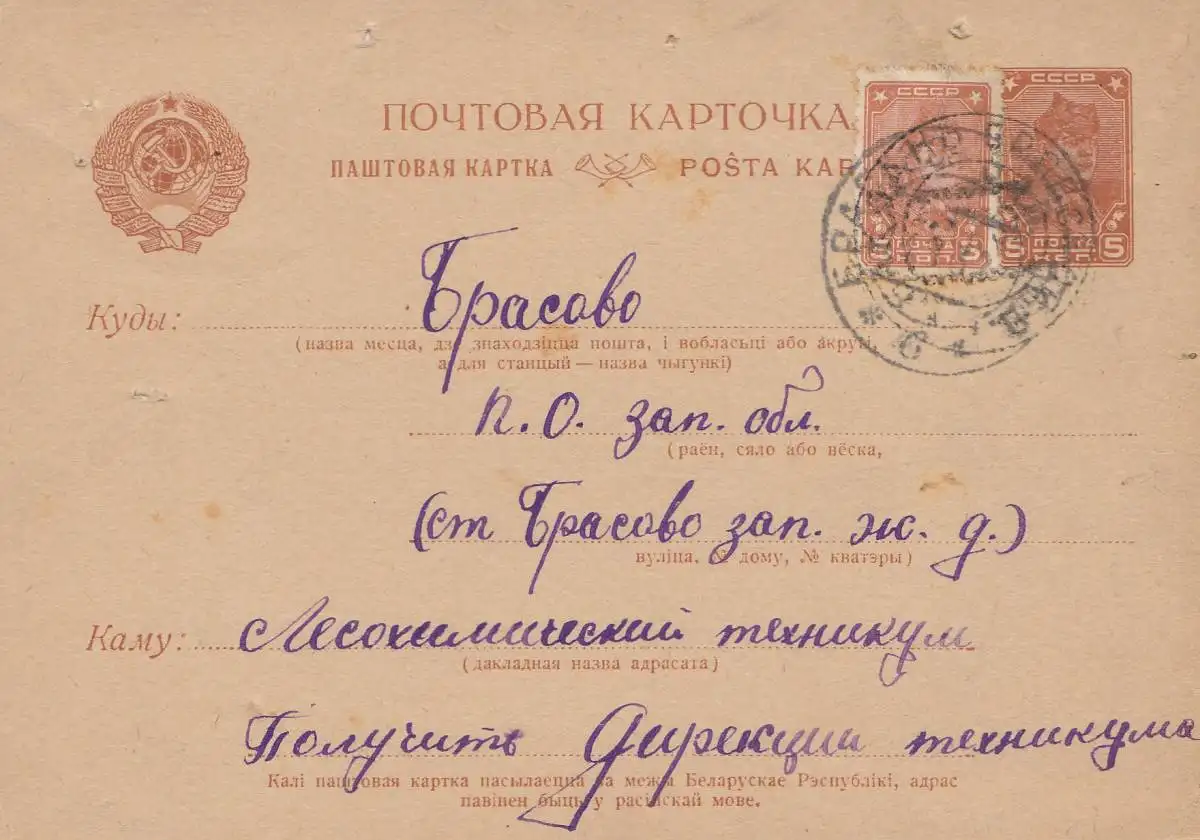 ПОЧТОВАЯ КАРТОЧКА
ПАШТОВАЯ КАРТКА POŜTA KAR
СССР
ПОЧТА
5 КОП. 5
СССР
ПОЧТА
5 КОП. 5
Куды: Брасово
(назва месца, дзе знаходзіцца пошта, і вобласьці або акругі,
а для станцый — назва чыгункі)
п. О. зап. обл.
(раён, сяло або вёска,
(ст Брасово зап. ж. д.)
вуліца, № дому, № кватэры)
Каму: Лесохимический техникум
(дакладная назва адрасата)
Получить Дирекции техникума
Калі паштовая картка пасылаецца за межы Беларускае Рэспублікі, адрас
павінен быць у расійскай мове.